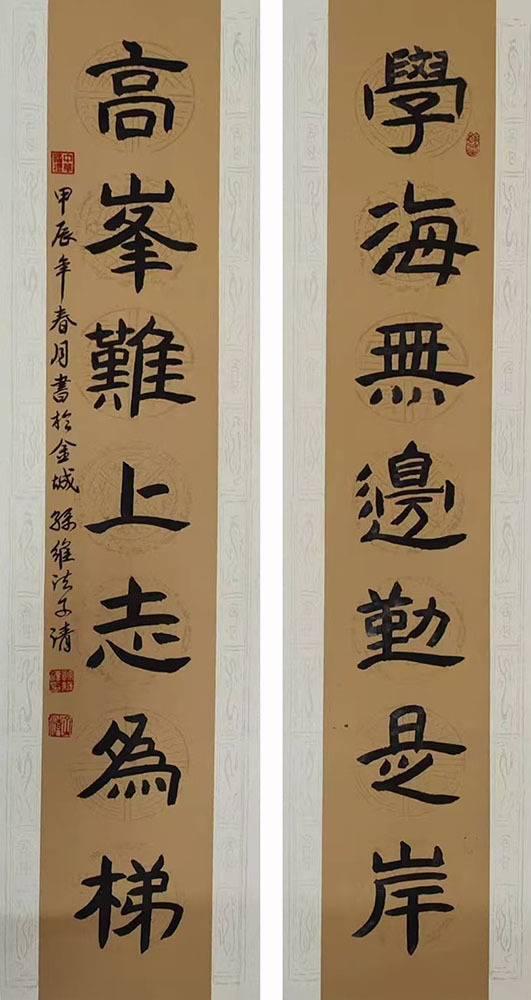 學海無邊勤是岸
高峯難上志為梯
甲辰年春月書於金城 孫維法子清